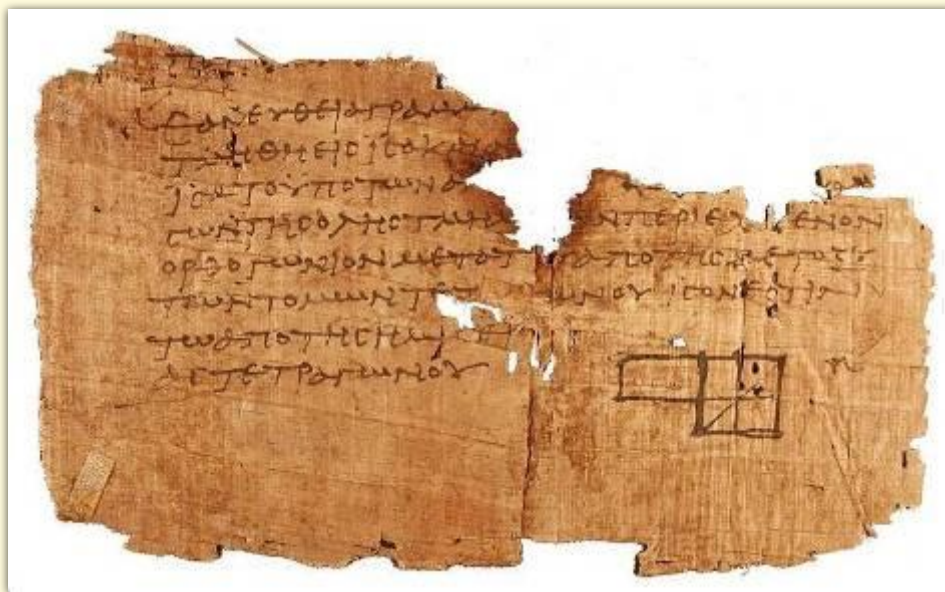 ΕΑΝ ΕΥΘΕΙΑ ΓΡΑΜΜ
ΤΜΗΘΗ ΕΙϹ ΙϹΑ ΚΑΙ
ΙϹΑ ΤΟ ΥΠΟ ΤΩΝ Α
ϹΩΝ ΤΗϹ ΟΛΗϹ ΤΜΗΜΑ ΩΝ ΠΕΡΙΕΧ ΜΕΝΟΝ
ΟΡΘΟΓΩΝΙΟΝ ΜΕΤΑ Τ ΑΠΟ ΤΗϹ ΜΕΤΟΞΥ
ΤΩΝ ΤΟΜΩΝ ΤΕΤ ΩΝΟΥ ΙϹΟΝ ΕϹΤΙΝ
ΤΩ ΑΠΟ ΤΗϹ ΗΜΙ
ΑϹ ΤΕΤΡΑΓΩΝΟΥ